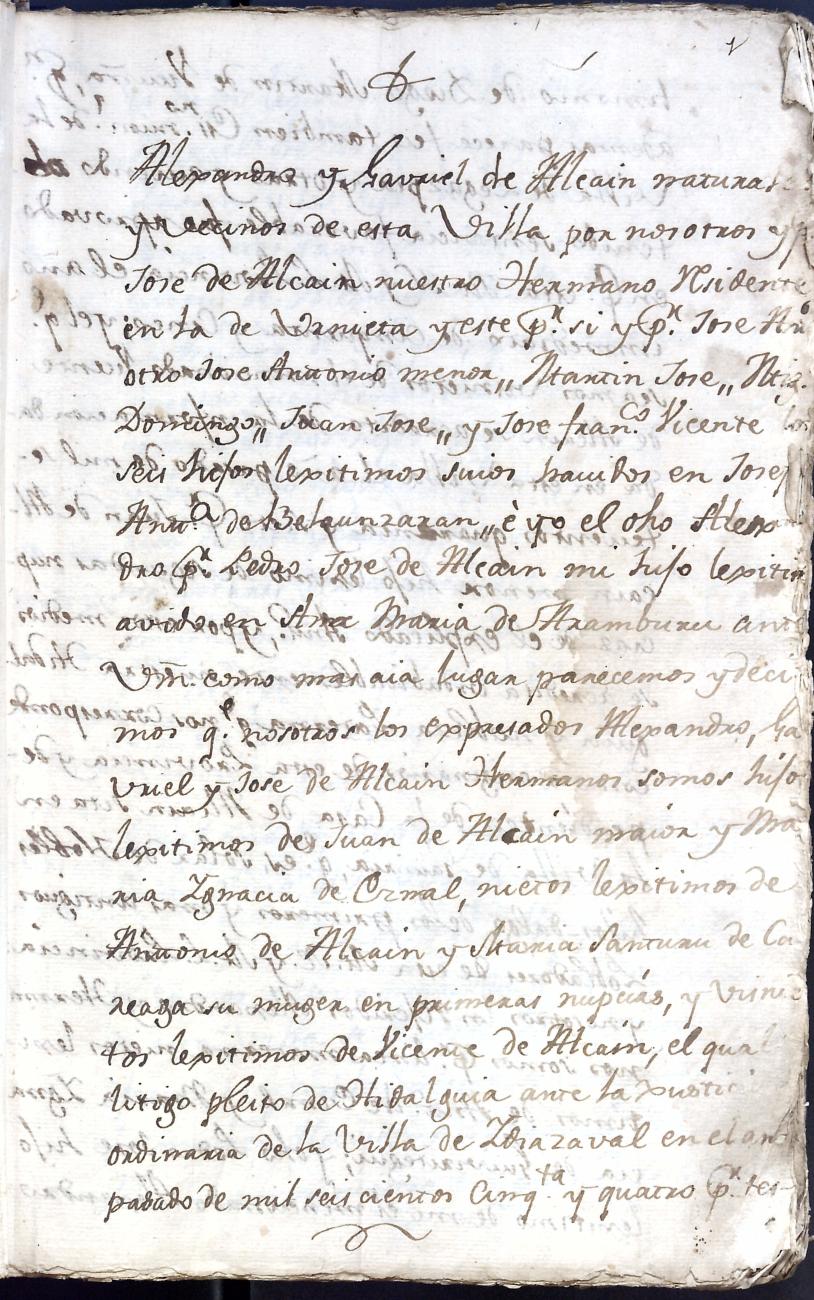 1
Alexandro y Gavriel de Alcain natura
y Vecinos de esta Villa por nosotros y
Jose de Alcain nuestro Hermano Residente
en la de Vrnieta y este p.r si y p.r Jose An.o
otro Jose Antonio menor,, Martin Jose,, Mig.
Domingo,, Juan Jose,, y Jose fran.co Vicente
seis hijos lexitimos suios havidos en Josep
Ant.a de Belaunzaran,, è yo el dho Alexan
dro p.r Pedro Jose de Alcain mi hijo lexitim
avido en Ana Maria de Aramburu ante
Vm. como mas aia lugar parecemos y deci
mos q.e nosotros los expresados Alexandro, Ga
vriel y Jose de Alcain Hermanos somos hijos
lexitimos de Juan de Alcain maior y Ma
ria Ygnacia de Ernal, nietos lexitimos de
Antonio de Alcain y Maria Santuru de Ca
reaga su muger en primeras nupcias, y Visnie
tos lexitimos de Vicente de Alcain, el qual
litigo pleito de Hidalguia ante la Xustici
ordinaria de la Villa de Ydiazaval en el an
pasado de mil seis cientos Cinq.ta y quatro p.r tes-